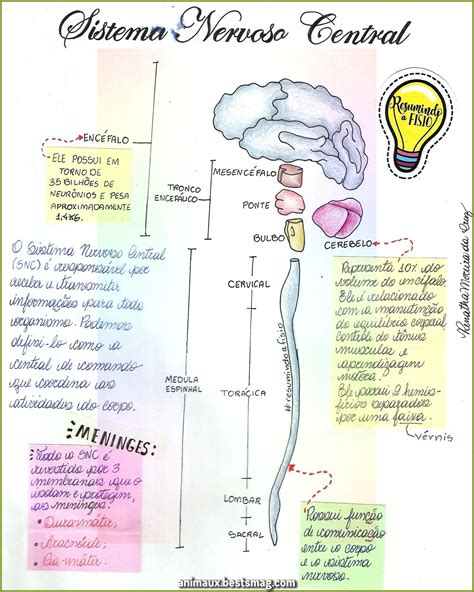 Sistema Nervoso Central
Resumindo
a FISIO
ENCÉFALO
ELE POSSUI EM
TORNO DE
35 BILHÕES DE
NEURÔNIOS E PESA
APROXIMADAMENTE
1,4KG.
TRONCO
ENCEFÁLICO
MESENCÉFALO
PONTE
BULBO
CEREBELO
Renatha Moreira da Cruz
O Sistema Nervoso Central
(SNC) é responsável por
receber e transmitir
informações para todo
organismo. Podemos
defini-lo como a
central de comando
que coordena as
atividades do corpo.
Representa 10% do
volume do encéfalo.
Ele é relacionado
com a manutenção
do equilíbrio corporal
control do tônus
muscular e
aprendizagem
motora.
Ele possui 2 hemis-
férios separados
por uma faixa.
vérmis
CERVICAL
MEDULA
ESPINHAL
TORÁCICA
#resumindoafisio
LOMBAR
SACRAL
MENINGES:
Todo o SNC é
revestido por 3
membranas que o
isodam e protegem,
as meninges:
• Dura-máter,
• Aracnóide;
• Pia-máter.
Possui função
de comunicação
entre o corpo
e o sistema
nervoso.
animaux.bestsmag.com